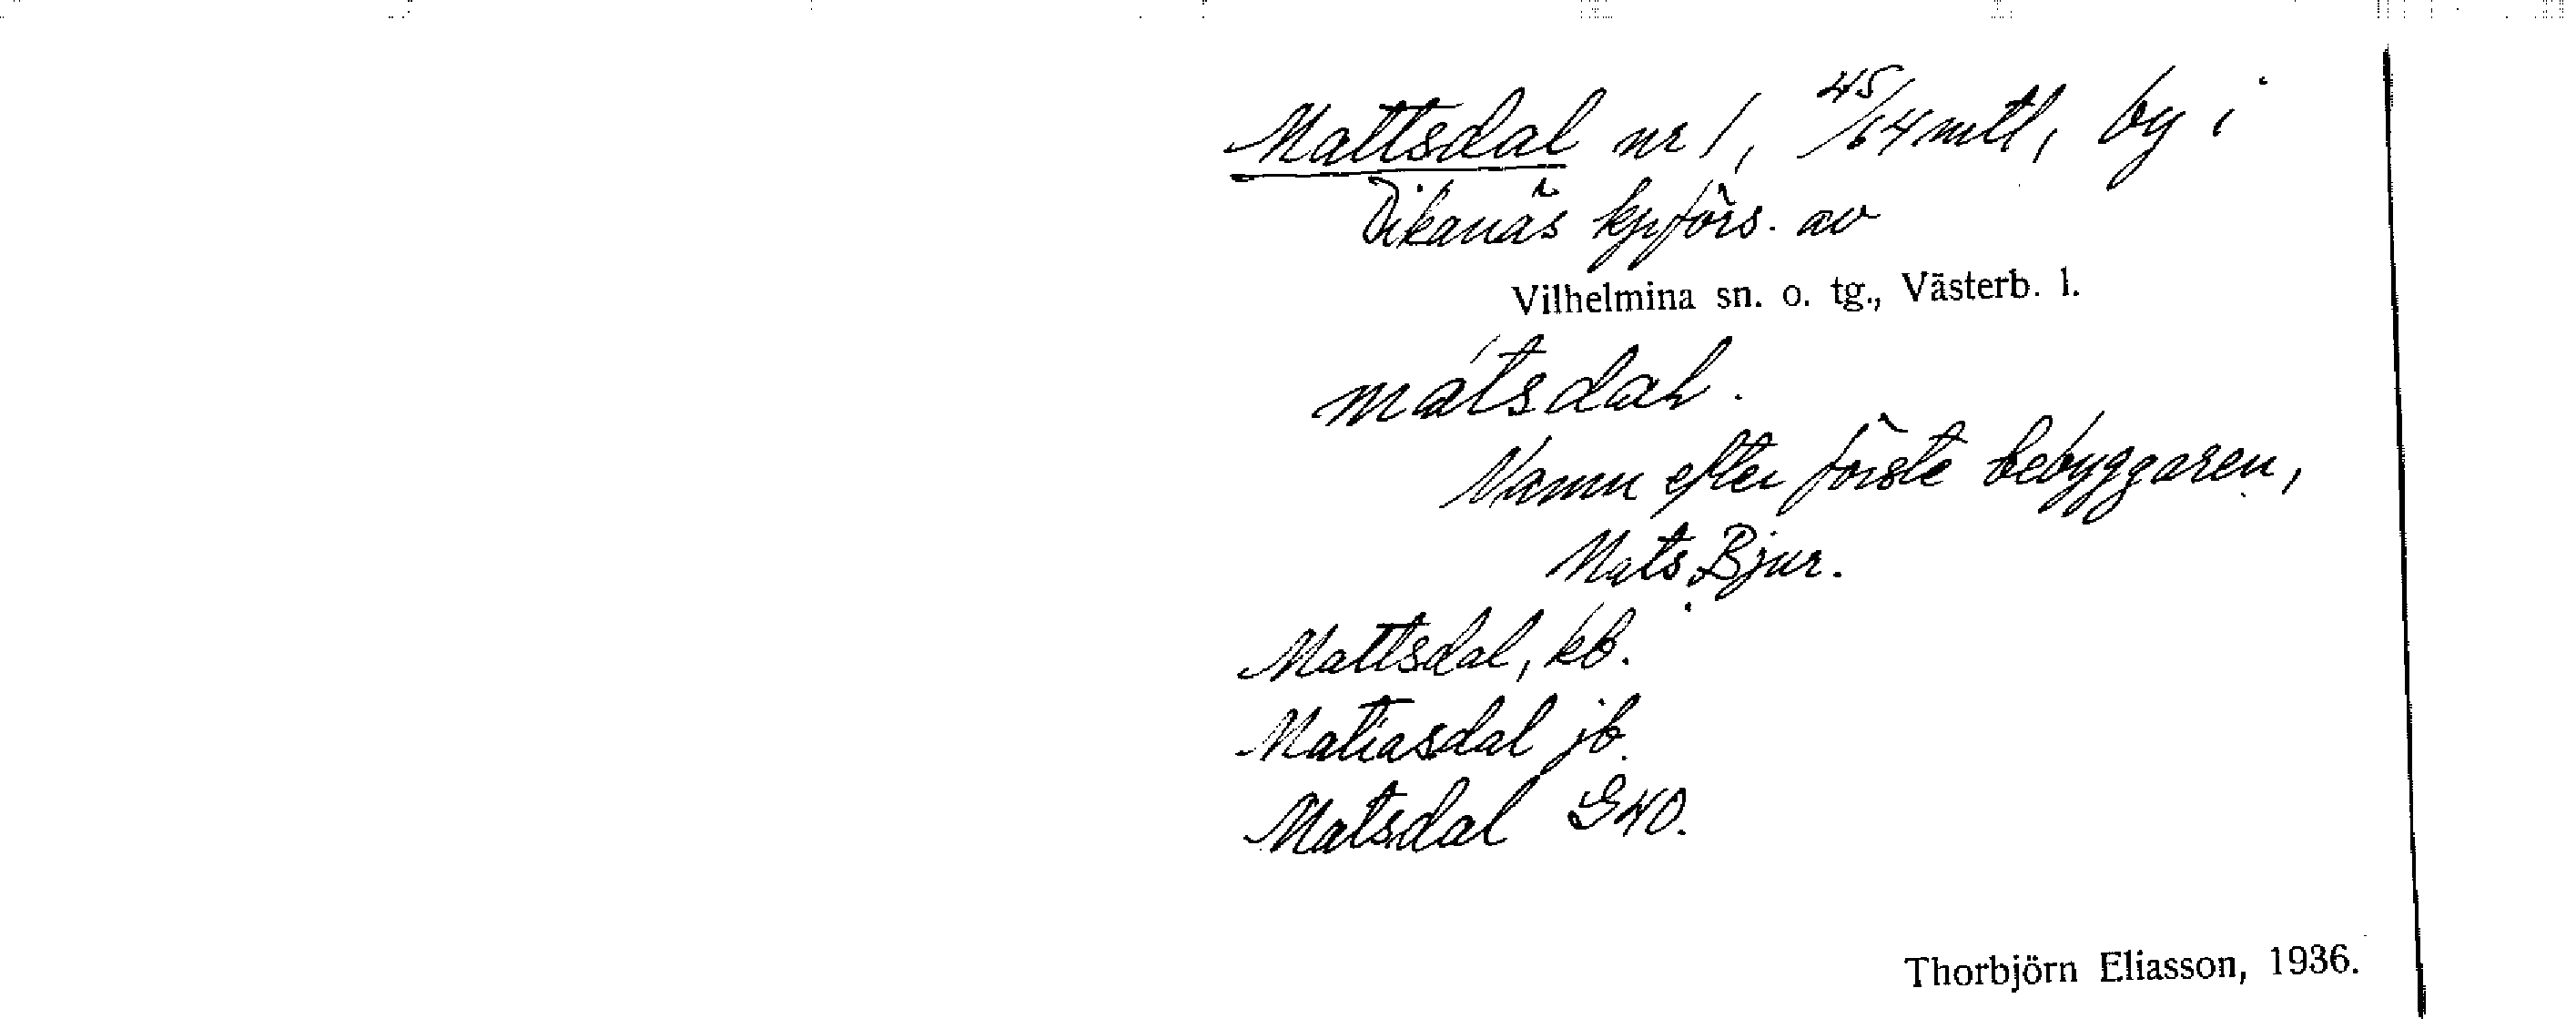 Mattsdal nr 1, 45/64 mtl, by i
Dikanäs kpförs. av
Vilhelmina sn. o. tg., Västerb. l.
mátsdaɫ.
Namn efter förste bebyggaren,
Mats Bjur.
Mattsdal, kb.
Matiasdal jb.
Matsdal G40.
Thorbjörn Eliasson, 1936.